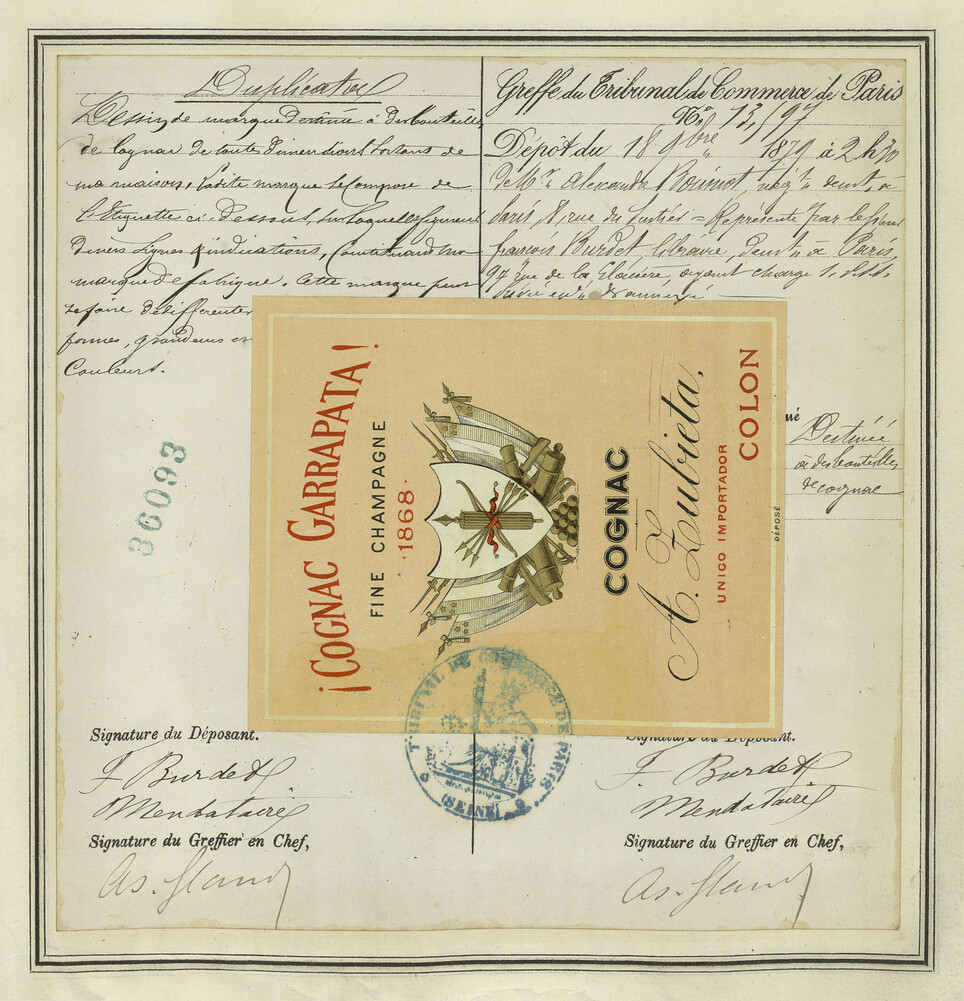 Duplicata
Dessin de marque destiné à des bouteilles
de Cognac de toutes dimensions sortans de
ma maison, ladite marque se compose de
l'Etiquette ci-dessous, sur laquelle figurent
divers signes & indications, Constituant ma
marque de fabrique. Cette marque peut
se faire de différentes
formes, grandeurs et
Couleurs.
36093
Greffe du Tribunal de Commerce de Paris
No 13,197
Dépôt du 18 9bre 1879 à 2 h 30
de Mr Alexandre négt demt à
Paris, 8, rue du = Représenté par le sieur
françois Burdet, libraire, demt à Paris,
97 rue de la Glacière, ayant charge
annexé
né
Destinée
à des bouteilles
de cognac
¡COGNAC GARRAPATA!
FINE CHAMPAGNE
·1868·
COGNAC
A. Zubieta,
UNICO IMPORTADOR
COLON
DÉPOSÉ
TRIBUNAL DE COMMERCE DE PARIS
(SEINE)
Signature du Déposant.
F Burdet
Mendataire
Signature du Greffier en Chef,
Signature du Déposant.
F Burdet
Mendataire
Signature du Greffier en Chef,